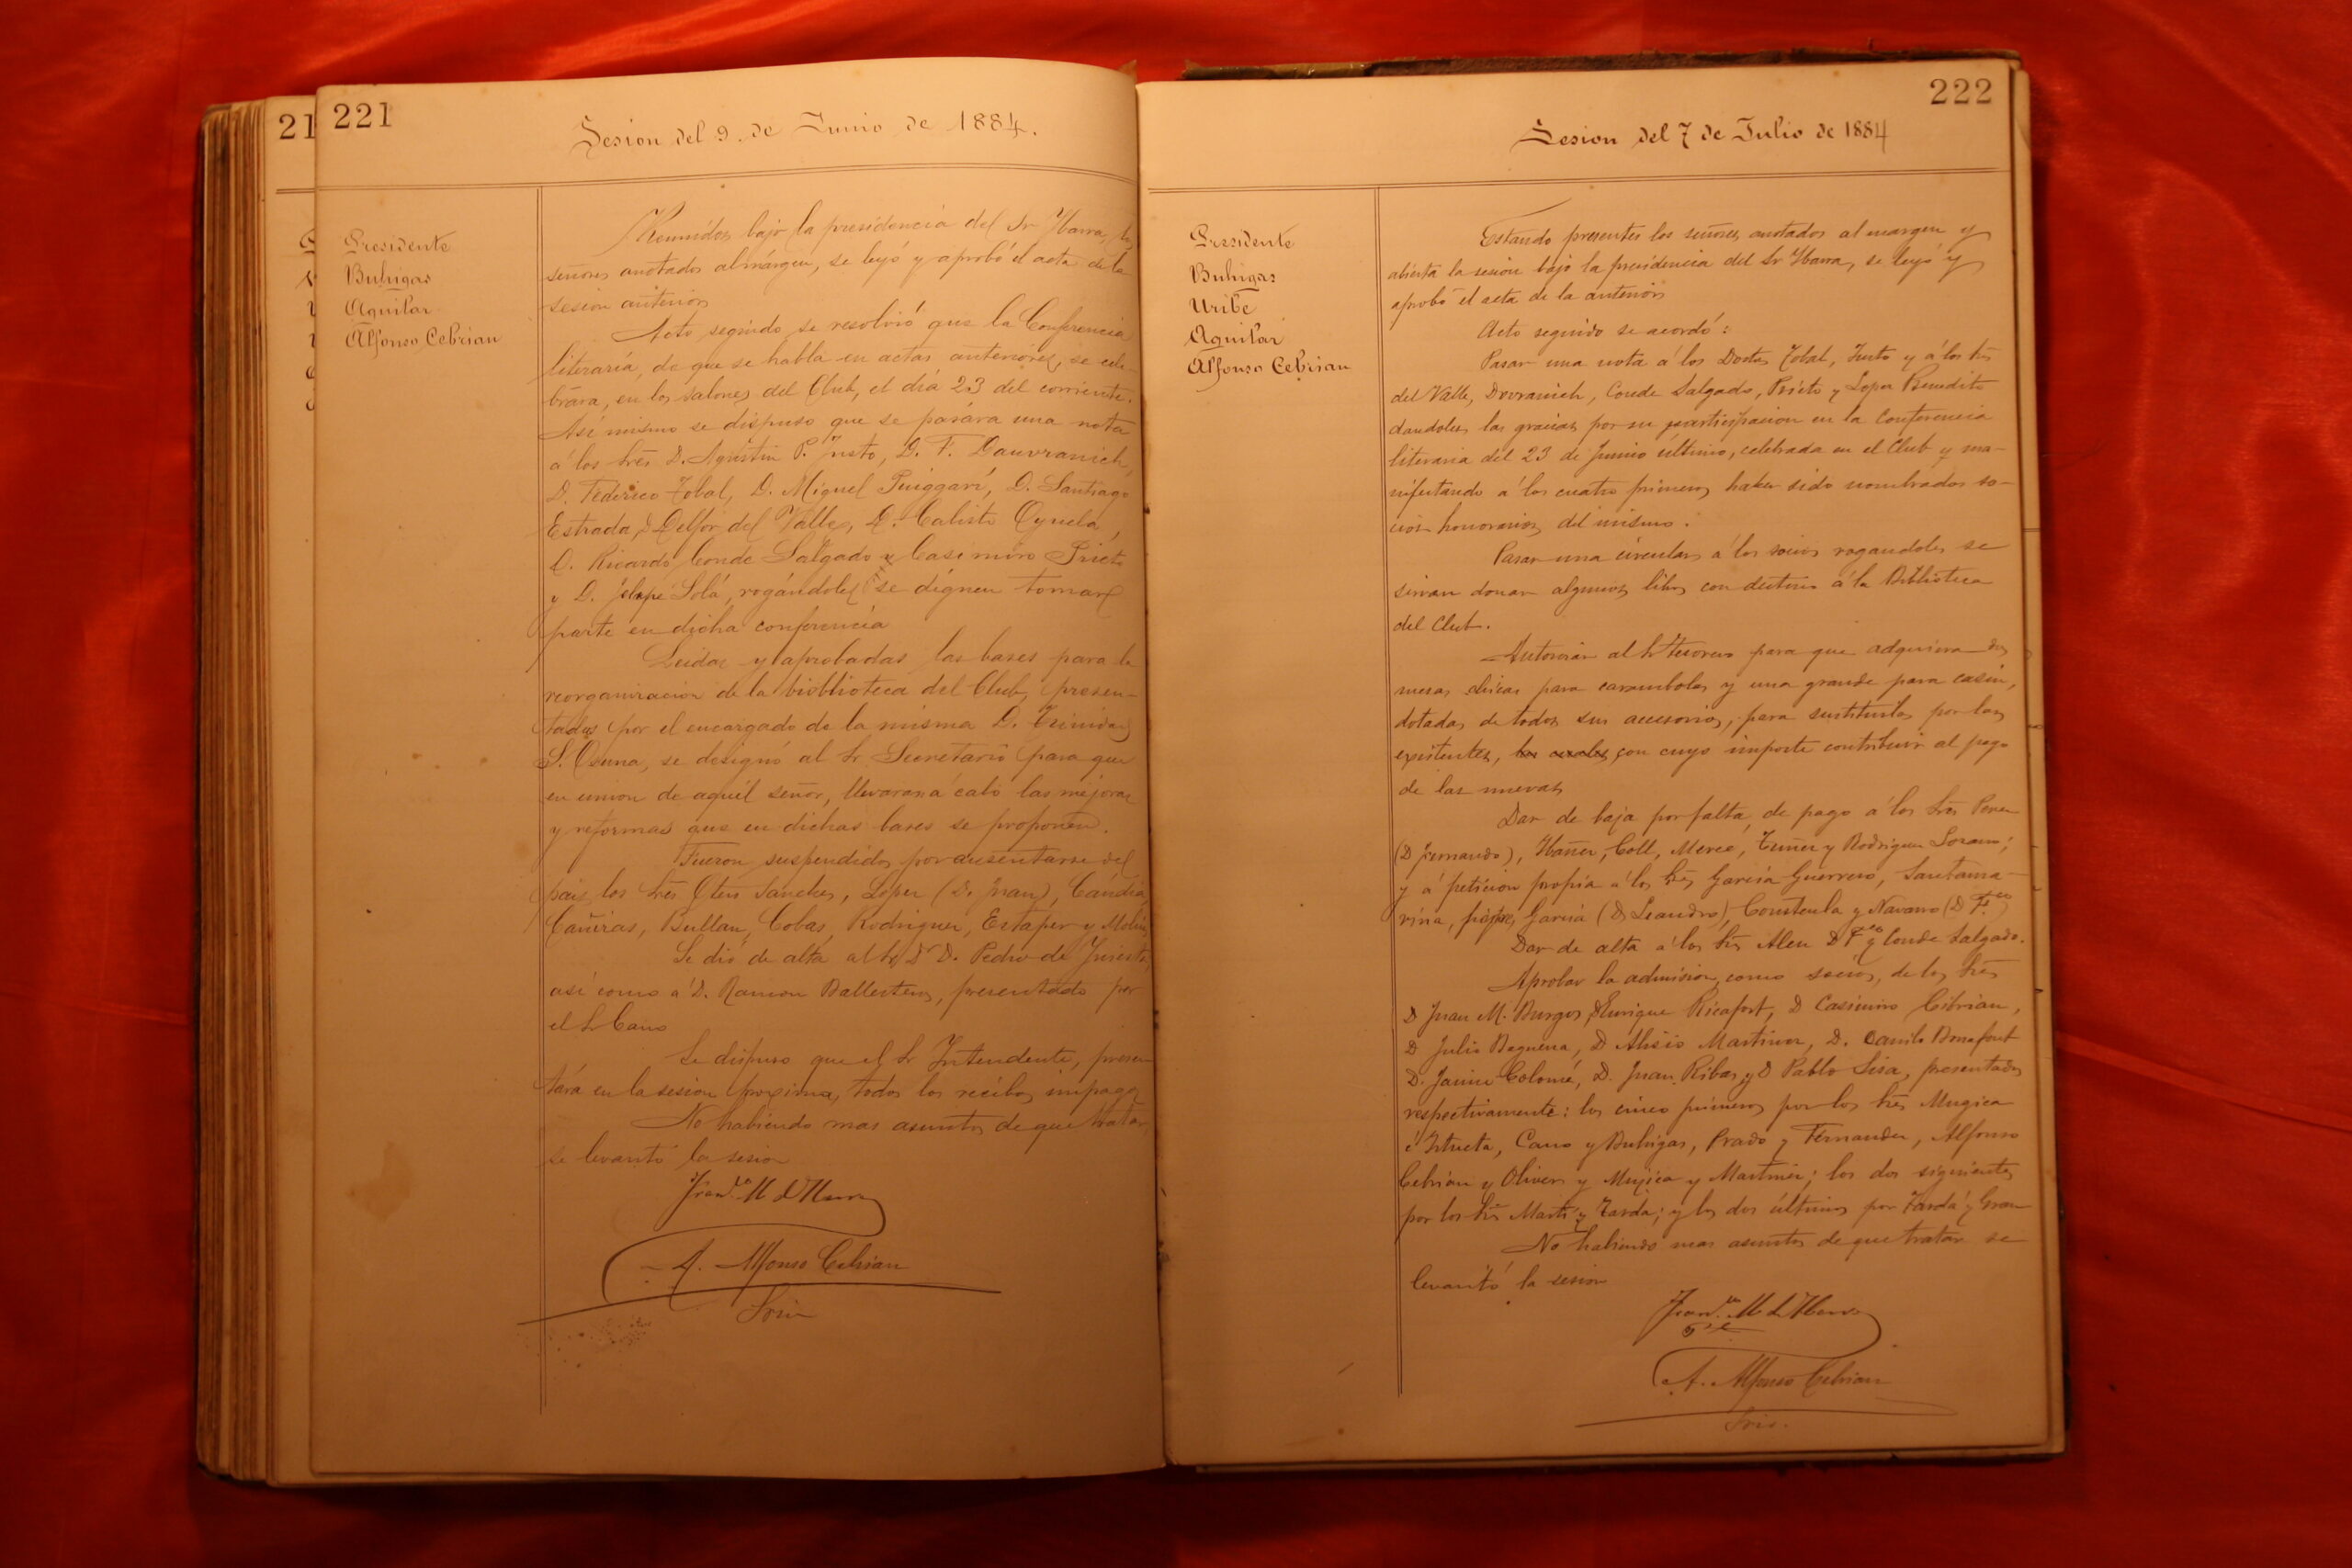 21
221
Sesion del 9. de Junio de 1884.
Presidente
Buhigas
Aguilar
Alfonso Cebrian
Reunidos bajo la presidencia del Sr Ybarra, los
señores anotados al márgen, se leyó y aprobó el acta de la
sesion anterior
Acto seguido se resolvió que la Conferencia
literaria, de que se habla en actas anteriores, se cele-
brára, en los salones del Club, el dia 23 del corriente.
Asi mismo se dispuso que se pasára una nota
á los Sres D. Agustin P. Justo, D. F. Dauvranich,
D. Federico Tobal, D. Miguel Puiggari, D. Santiago
Estrada, D Delfor del Valle, D. Calisto Oyuela,
D. Ricardo Conde Salgado y Casimiro Prieto
y D. Felipe Solá, rogándoles se dignen tomar
parte en dicha conferencia
Leidas y aprobadas las bases para la
reorganizacion de la bioblioteca del Club, presen-
tadas por el encargado de la misma D. Trinidad
S. Osuna, se designó al Sr Secretario para que
en union de aquél señor, llevaran á cabo las mejoras
y reformas que en dichas bases se proponen.
Fueron suspendidos por ausentarse del
pais los Sres Otero Sanchez, Lopez (D. Juan), Candia,
Cañizas, Bullan, Cobas, Rodriguez, Estaper y Molina
Se dió de alta al Sr Dr D. Pedro de
así como á D. Ramon Ballesteros, presentado por
el Sr Cano
Se dispuso que el Sr Intendente, presen-
tára en la sesion proxima, todos los recibos impagos
No habiendo mas asuntos de que tratar
se levantó la sesion
Franco M de Ybarra
A. Alfonso Cebrian
Srio
222
Sesion del 7 de Julio de 1884
Presidente
Buhigas
Uribe
Aguilar
Alfonso Cebrian
Estando presentes los señores anotados al margen y
abierta la sesion bajo la presidencia del Sr Ybarra, se leyó y
aprobó el acta de la anterior
Acto seguido se acordó:
Pasar una nota á los Dores Tobal, Justo y á los Sres
del Valle, Dovranich, Conde Salgado, Prieto y Lopez Benedito
dandoles las gracias por su participacion en la Conferencia
literaria del 23 de Junio último, celebrada en el Club y ma-
nifestando á los cuatro primeros haber sido nombrados so-
cios honorarios del mismo.
Pasar una circular á los socios rogandoles se
sirvan donar algunos libros con destino á la Biblioteca
del Club.
Autorizar al Sr tesorero para que adquiera dos
mesas chicas para carambolas y una grande para casin,
dotadas de todos sus accesorios, para sustituirlas por las
existentes, las cuales con cuyo importe contribuir al pago
de las nuevas
Dar de baja por falta de pago á los Sres Perez
(D Fernando), Ybañez, Coll, Merce, Tuñez y Rodriguez Lozano;
y á peticion propia á los Sres Garcia Guerrero, Santama-
rina, Garcia (D Leandro), Constenla y Navarro (D Fco)
Dar de alta á los Sres Aleu D Fco y Conde Salgado.
Aprobar la admision, como socios, de los Sres
D Juan M. Burgos, D Enrique Ricafort, D Casimiro Cebrian,
D Julio Baguena, D Alisio Martinez, D. Camilo Bonafont
D. Jaime Colomé, D. Juan Ribas y D Pablo Lisa, presentados
respectivamente: los cinco primeros por los Sres Mugica
é Ytueta, Cano y Buhigas, Prado y Fernandez, Alfonso
Cebrian y Oliver y Mujica y Martinez; los dos siguientes
por los Sres Marti y Tarda; y los dos últimos por Tarda y Grau
No habiendo mas asuntos de que tratar se
levantó la sesion
Franco M de Ybarra
Pte
A. Alfonso Cebrian
Srio.